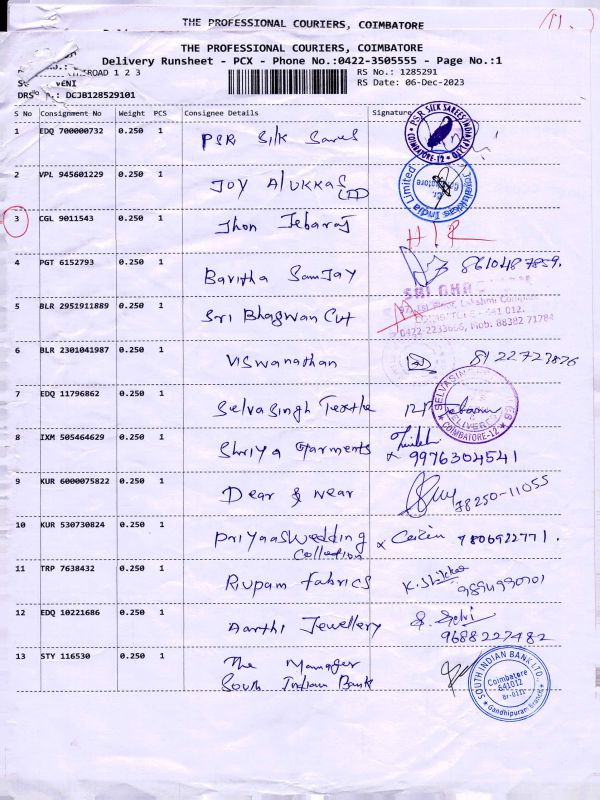 THE PROFESSIONAL COURIERS, COIMBATORE
(11.)
THE PROFESSIONAL COURIERS, COIMBATORE
Delivery Runsheet - PCX - Phone No.:0422-3505555 - Page No.:1
ROAD 1 2 3
VENI
DRS No.: DCJB128529101
RS No.: 1285291
RS Date: 06-Dec-2023
S No Consignment No Weight PCS Consignee Details Signature
1 EDQ 700000732 0.250 1 PSR Silk Sarees PSR SILK SAREES INDIA COIMBATORE-12
2 VPL 945601229 0.250 1 JOY Alukkas LTD Joyalukkas India Limited Coimbatore
3 CGL 9011543 0.250 1 Jhon Jebaraj
4 PGT 6152793 0.250 1 Bavitha Sanjay 8610487859.
5 BLR 2951911889 0.250 1 Sri Bhagwan Cut SRI Lakshmi Complex 641 012. 0422-2233666, Mob: 88382 71784
6 BLR 2301041987 0.250 1 Viswanathan 8122727826
7 EDQ 11796862 0.250 1 Selvasingh Textile COIMBATORE-12
8 IXM 505464629 0.250 1 Shriya Garments 9976304541
9 KUR 6000075822 0.250 1 Dear & near 78250-11055
10 KUR 530730824 0.250 1 Priyaaswedding Collection 7806922771.
11 TRP 7638432 0.250 1 Rupam fabrics
12 EDQ 10221686 0.250 1 Aarthi Jewellery S. Selvi 9688227482
13 STY 116530 0.250 1 The Manager South Indian Bank SOUTH INDIAN BANK LTD. Coimbatore 641012 Gandhipuram Branch